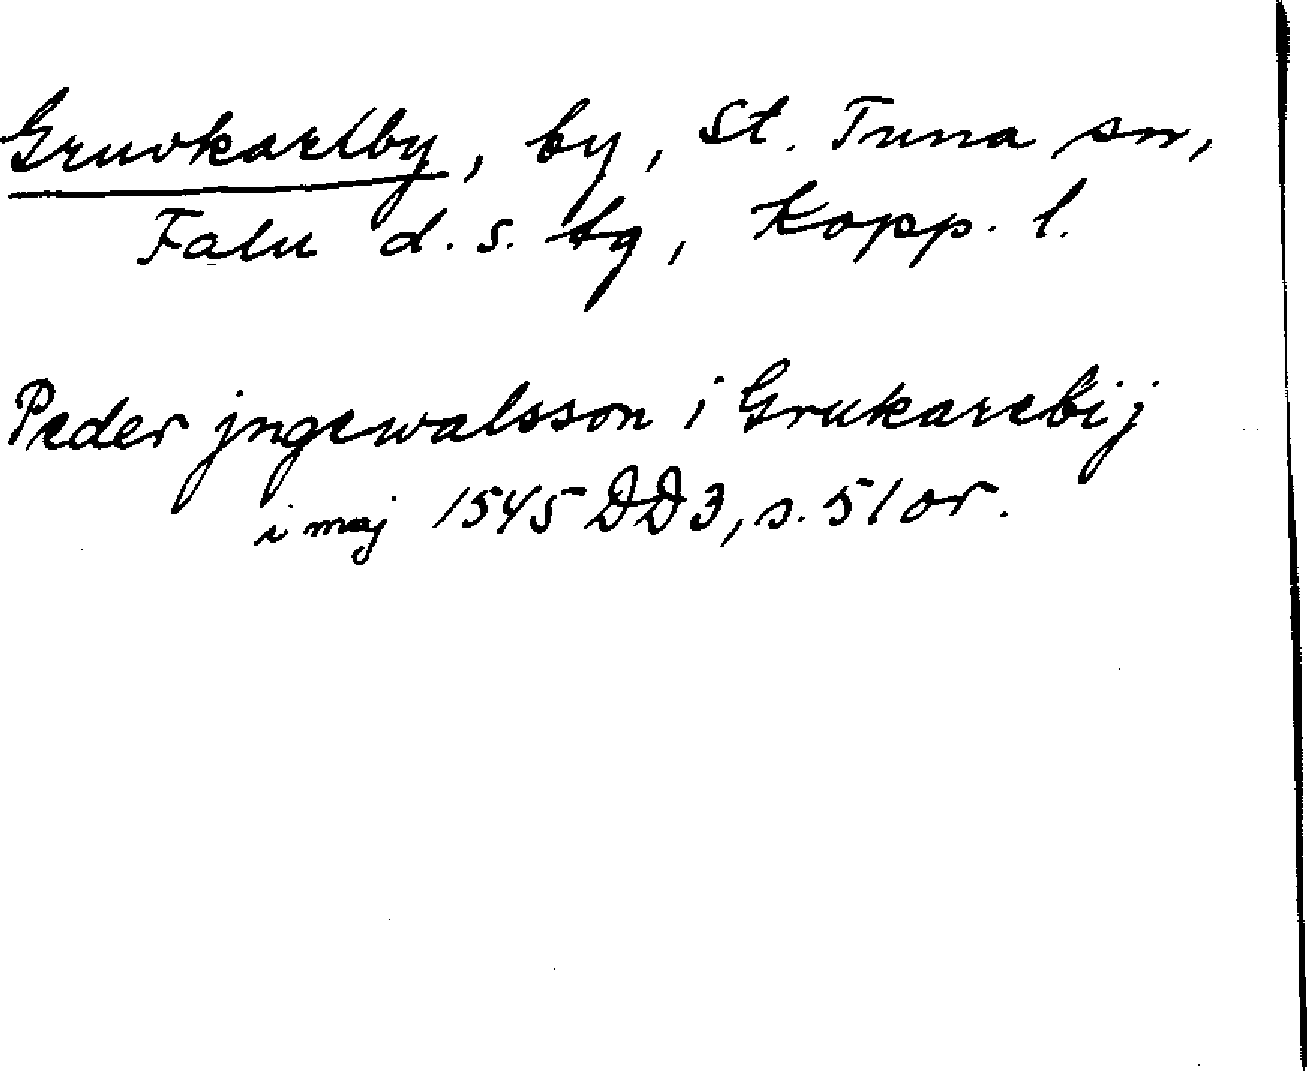 Gruvkarlby, by, St. Tuna sn,
Falu d. s. tg, Kopp. l.
Peder jngewalsson i Grukarebij
i maj 1545 DD3, s. 51 or.